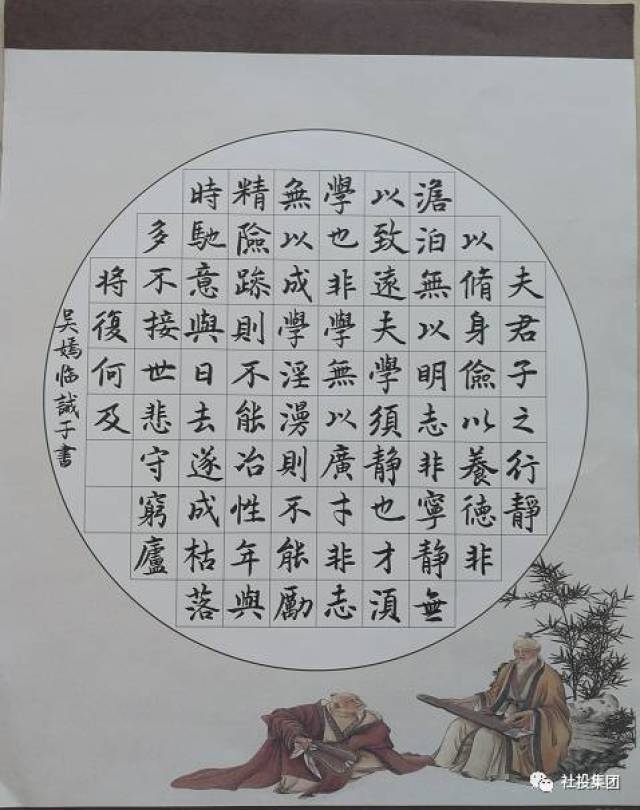 夫君子之行靜
以脩身儉以養德非
澹泊無以明志非寧靜無
以致遠夫學須静也才湏
學也非學無以廣才非志
無以成學淫漫則不能勵
精險躁則不能冶性年與
時馳意與日去遂成枯落
多不接世悲守窮廬
將復何及
吴嫣临誡子書
社投集团